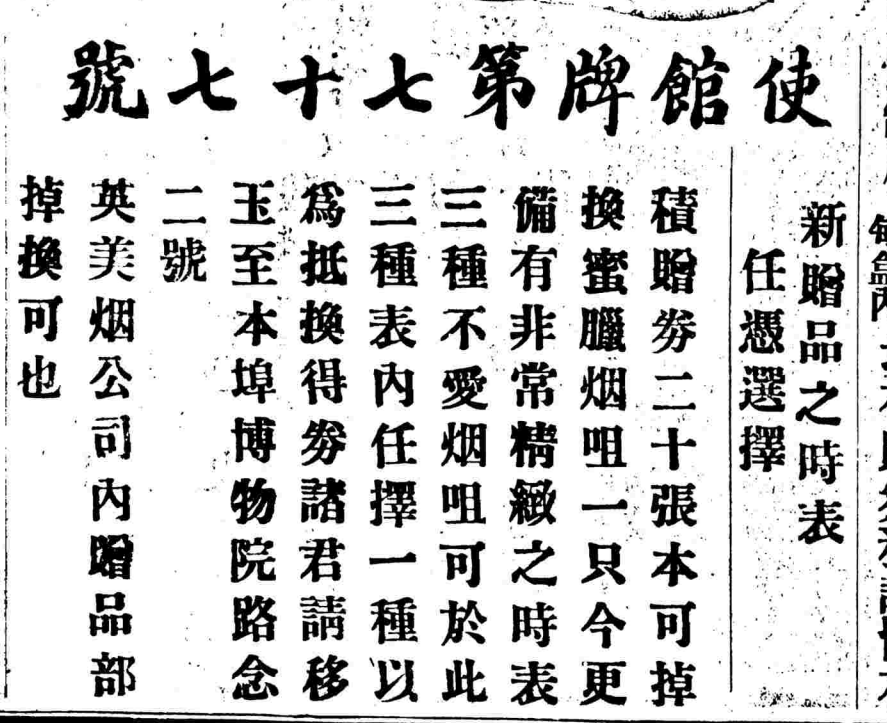 使館牌第七十七號
新贈品之時表
任憑選擇
積贈券二十張本可掉
換蜜臘烟咀一只今更
備有非常精緻之時表
三種不愛烟咀可於此
三種表內任擇一種以
爲抵換得券諸君請移
玉至本埠博物院路念
二號
英美烟公司內贈品部
掉換可也